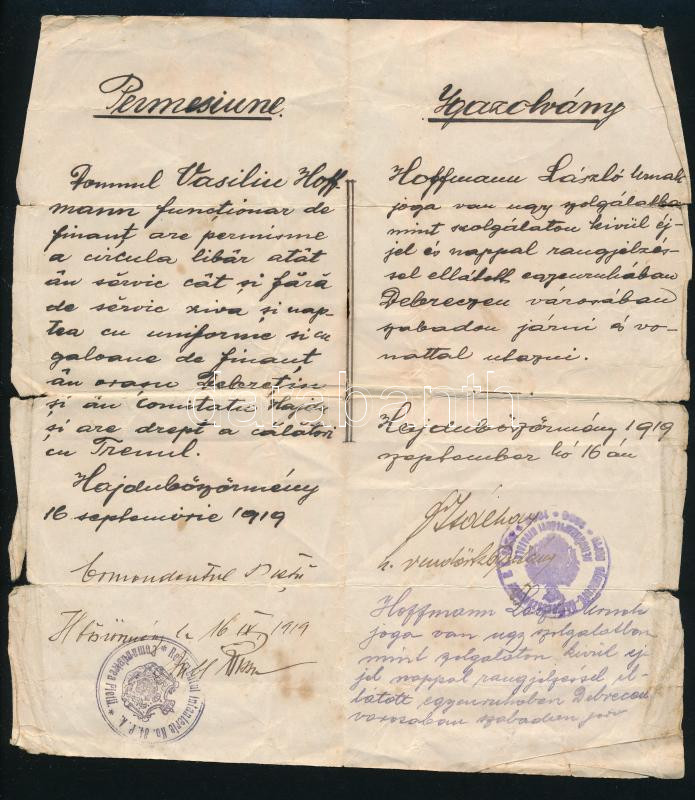 Permesiune.
Domnul Vasiliu Hoff
mann funcționar de
finanț are permisme
a circula libăr atât
ân sărvic cât și fără
de sărvic ziva și nap-
tea cu uniformé si cu
galoane de finanț
ân orasu Debrețin
și ân Comitatu Hajdu
și are drept a călători
cu Trenul.
Hajduböszörmény
16 septemvrie 1919
Comandantul
16 IX, 1919
Infanterie No. 84. P. A. * Comandatura Pieții. *
Igazolvány
Hoffmann László urnak
joga van ugy szolgálatba
mint szolgálaton kivül éj-
jel és nappal rangjelzés-
sel ellátott egyenruhában
Debreczen városában
szabadon járni és vo-
nattal utazni.
Hajduböszörmény 1919
szeptember hó 16 án
h. rendőrkapitány
Hoffmann László urnak
joga van ugy szolgalatban
mint szolgalaton kivül éj
jel nappal rangjelzéssel el-
látott egyenruhaben Debrecen
varosaban szabadon jarv
darabanth